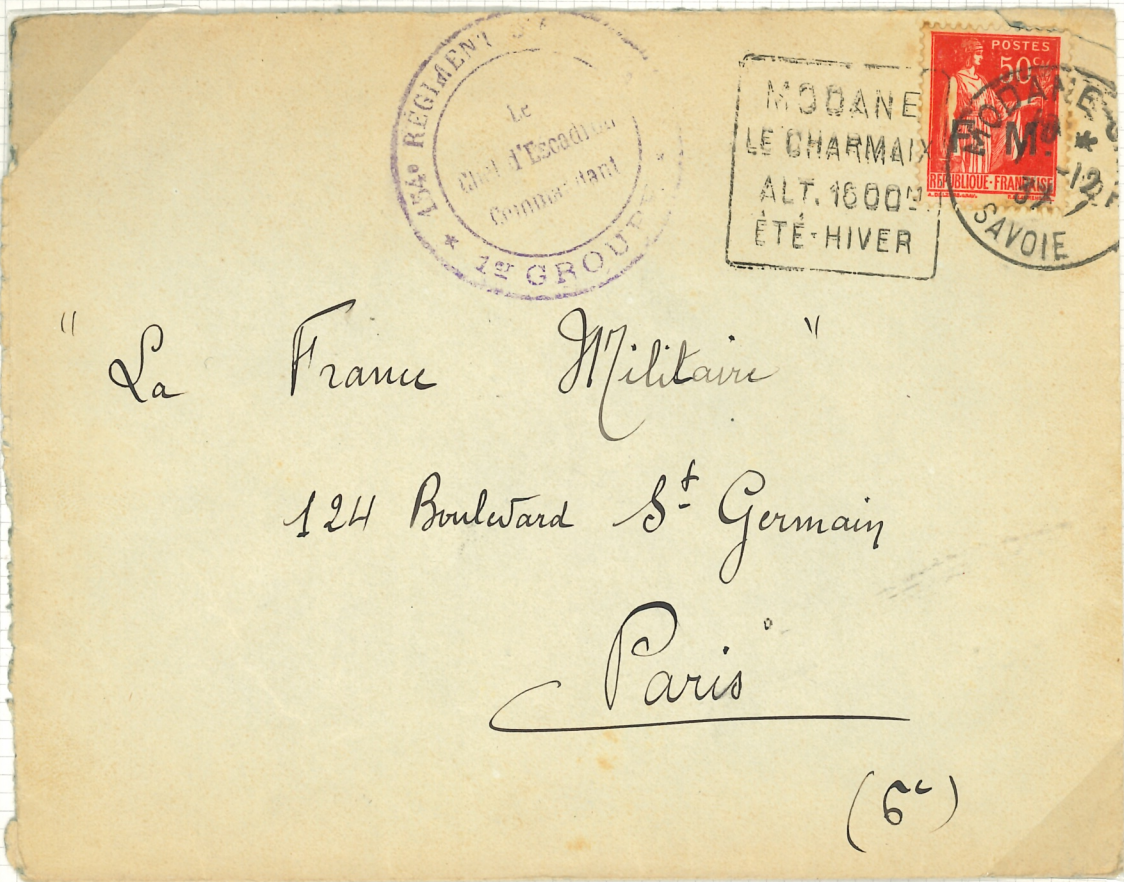 154e RÉGIMENT
Le
Chef d'Escadron
Commandant
* 1er GROUPE *
MODANE
LE CHARMAIX
ALT. 1600m
ÉTÉ-HIVER
POSTES
50c
F M
RÉPUBLIQUE-FRANÇAISE
MODANE
*
-12
SAVOIE
" La France Militaire "
124 Boulevard St Germain
Paris
(6e)